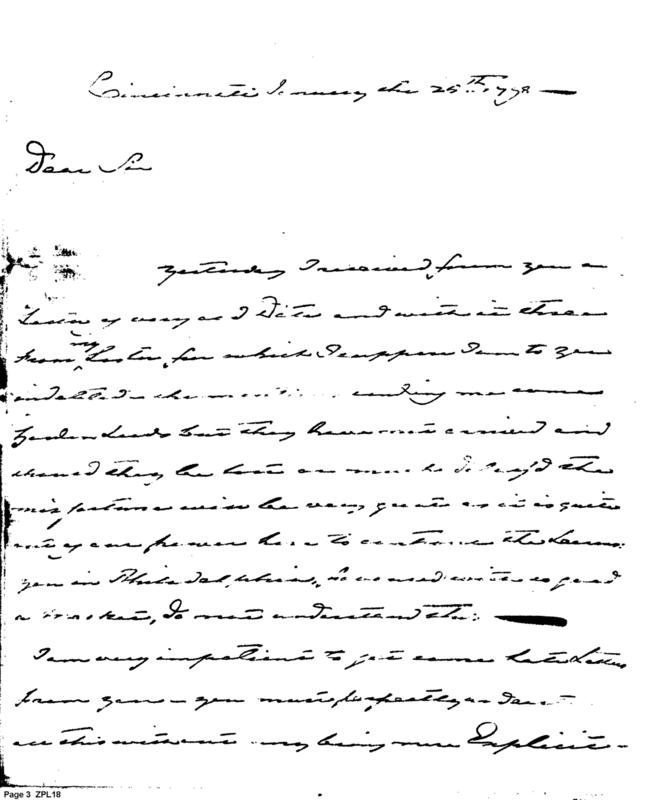 Cincinnati January the 25th 1798 —
Dear Sir
Yesterday I received from you a
Letter of very old Date and with it three
from my Sister, for which I suppose I am to you
indebted. she mentions sending me some
Garden Seeds but they have not arrived and
should they be lost or much delay'd the
misfortune will be very great as it is quite
out of our power here to
you in Philadelphia, used with so good
a market, do not understand this
I am very impatient to get some late Letters
from you – you must perfectly
all this without my being more Explicit –
Page 3 ZPL18